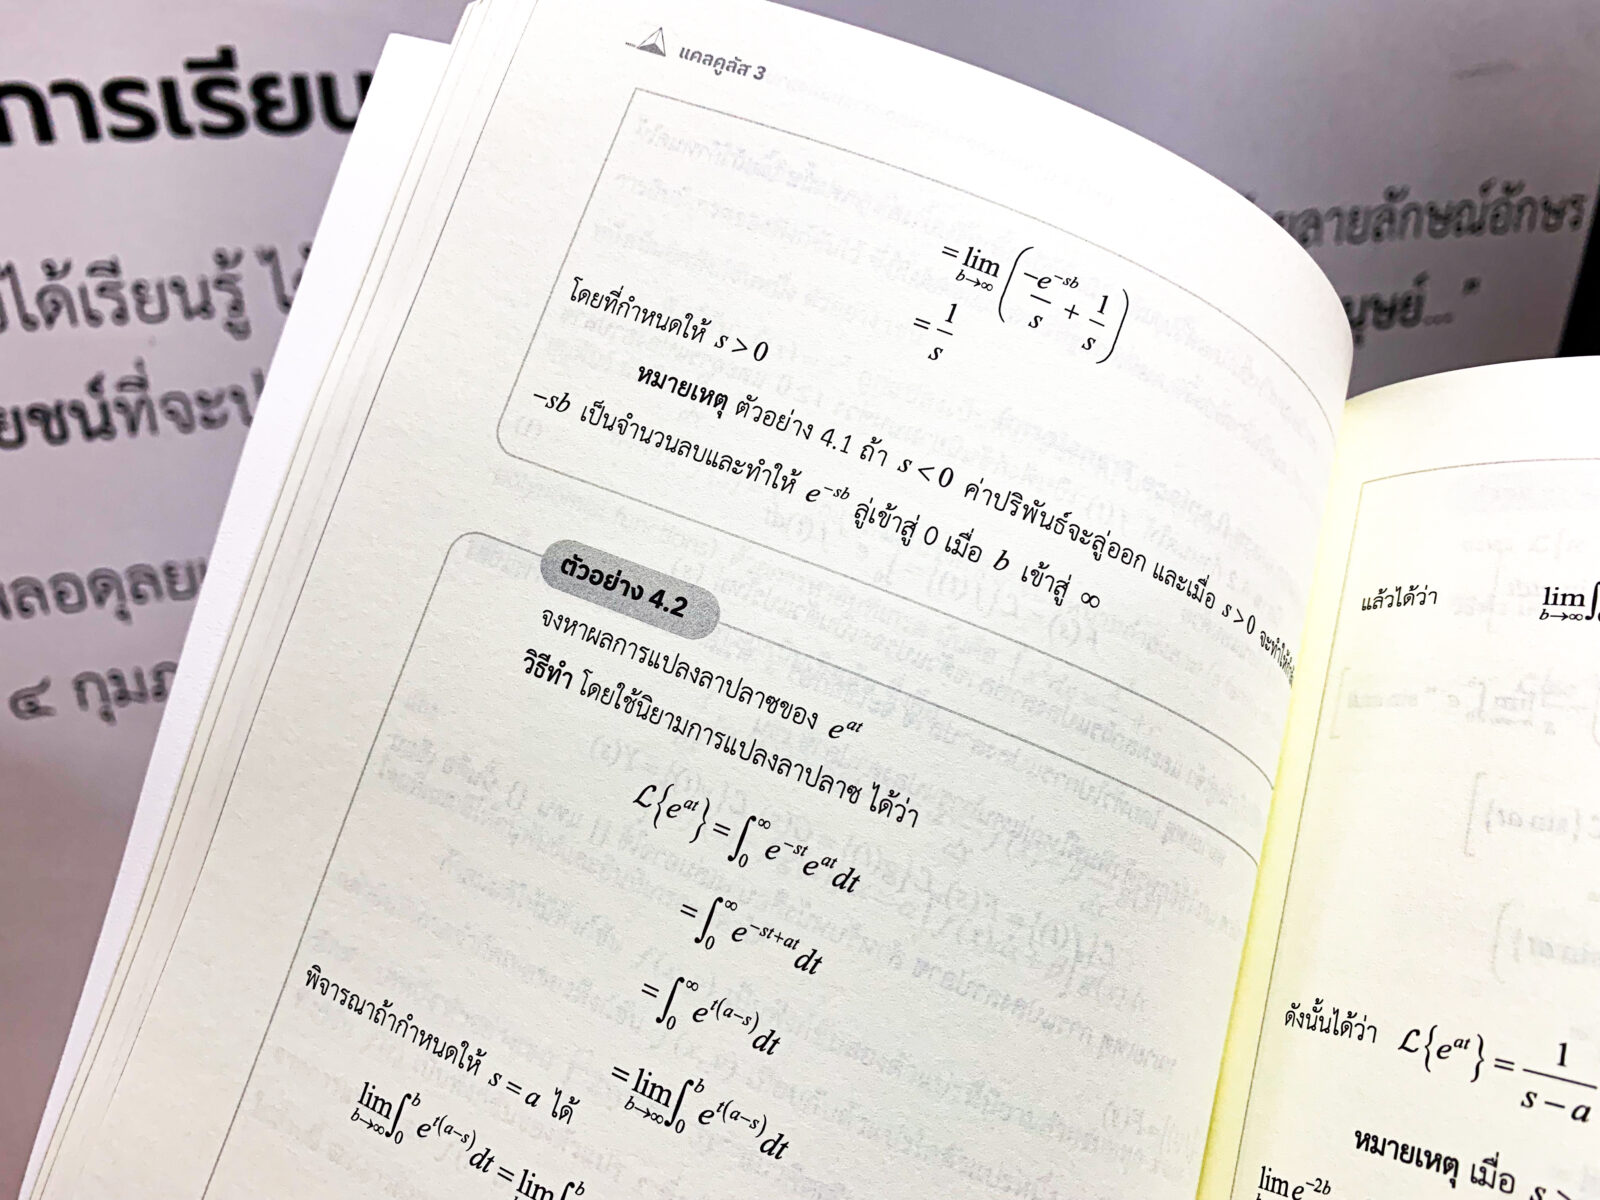 การเรียน
ได้เรียนรู้
ลายลักษณ์อักษร
ยชน์ที่จะ
๔
แคลคูลัส 3
= lim b→∞ (−e^{−sb}/s + 1/s)
= 1/s
โดยที่กำหนดให้ s > 0
หมายเหตุ ตัวอย่าง 4.1 ถ้า s < 0 ค่าปริพันธ์จะลู่ออก และเมื่อ s > 0 จะทำให้
−sb เป็นจำนวนลบและทำให้ e^{−sb} ลู่เข้าสู่ 0 เมื่อ b เข้าสู่ ∞
ตัวอย่าง 4.2
จงหาผลการแปลงลาปลาซของ e^{at}
วิธีทำ โดยใช้นิยามการแปลงลาปลาซ ได้ว่า
ℒ{e^{at}} = ∫_0^∞ e^{−st}e^{at}dt
= ∫_0^∞ e^{−st+at}dt
= ∫_0^∞ e^{t(a−s)}dt
= lim b→∞ ∫_0^b e^{t(a−s)}dt
พิจารณาถ้ากำหนดให้ s = a ได้
lim b→∞ ∫_0^b e^{t(a−s)}dt = lim ∫^b
แล้วได้ว่า lim b→∞ ∫
ดังนั้นได้ว่า ℒ{e^{at}} = 1/(s−a)
หมายเหตุ เมื่อ s >
lim e^{−2b}